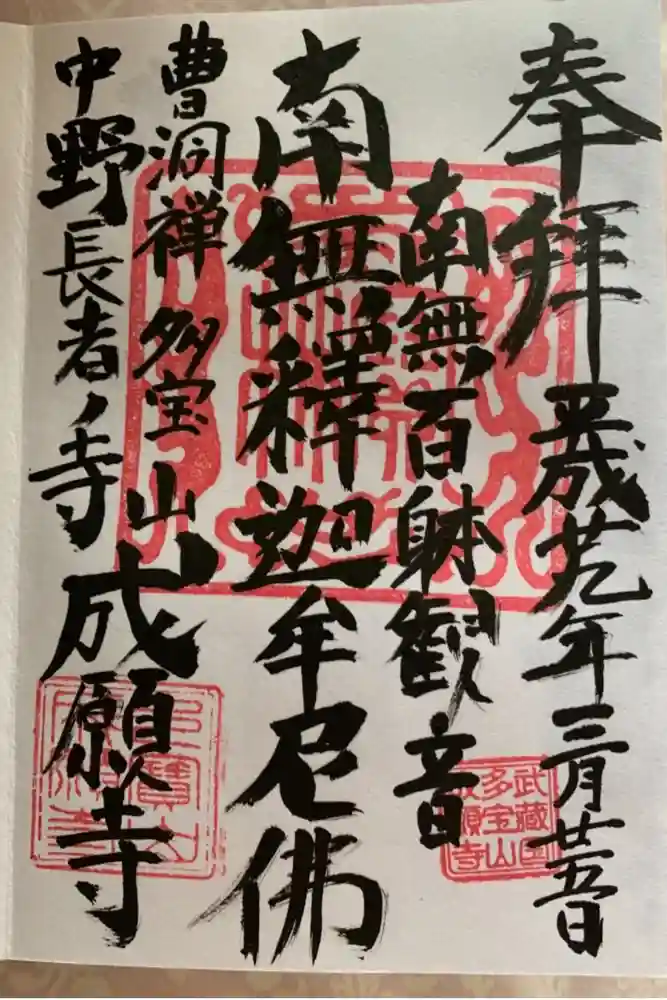 奉拝
平成廿九年三月廿五日
南無百躰観音
南無釋迦牟尼佛
曹洞禅 多宝山 成願寺
中野長者ノ寺
武蔵国
多宝山
成願寺